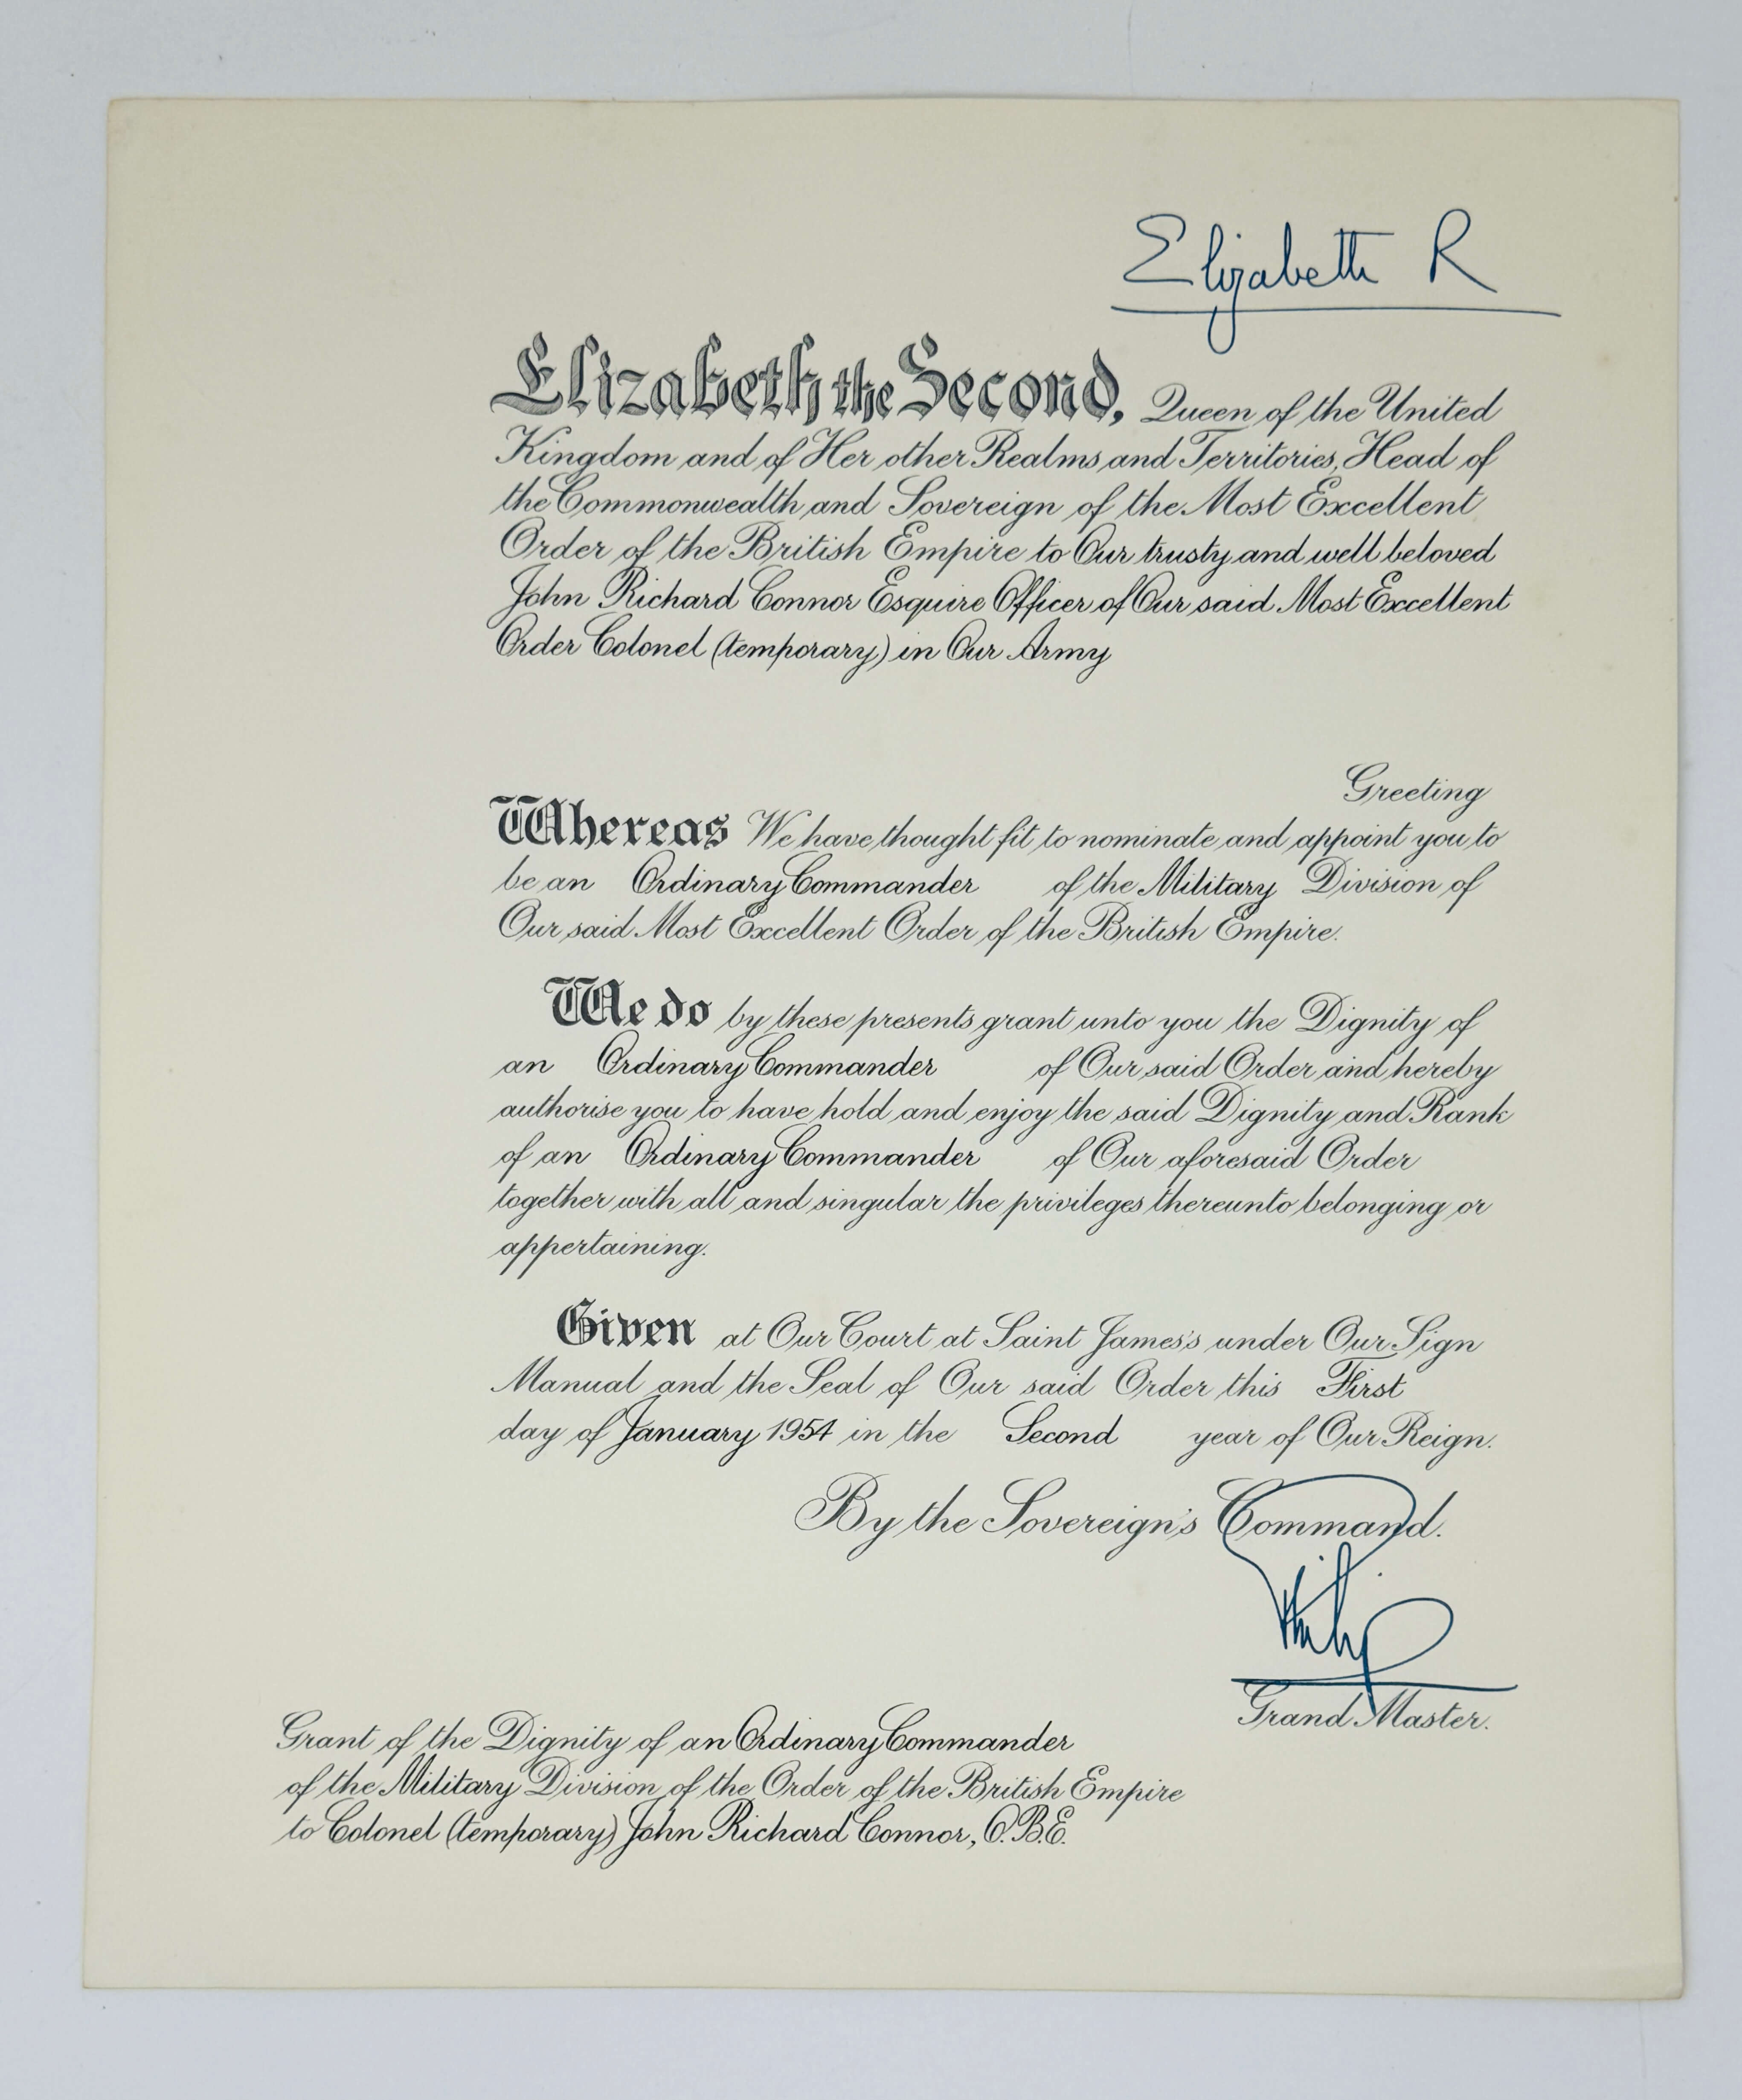 Elizabeth R
Elizabeth the Second, Queen of the United
Kingdom and of Her other Realms and Territories, Head of
the Commonwealth and Sovereign of the Most Excellent
Order of the British Empire to Our trusty and well beloved
John Richard Connor Esquire Officer of Our said Most Excellent
Order Colonel (temporary) in Our Army
Greeting
Whereas We have thought fit to nominate and appoint you to
be an Ordinary Commander of the Military Division of
Our said Most Excellent Order of the British Empire.
We do by these presents grant unto you the Dignity of
an Ordinary Commander of Our said Order and hereby
authorise you to have hold and enjoy the said Dignity and Rank
of an Ordinary Commander of Our aforesaid Order
together with all and singular the privileges thereunto belonging or
appertaining.
Given at Our Court at Saint James's under Our Sign
Manual and the Seal of Our said Order this First
day of January 1954 in the Second year of Our Reign.
By the Sovereign's Command.
Philip
Grand Master.
Grant of the Dignity of an Ordinary Commander
of the Military Division of the Order of the British Empire
to Colonel (temporary) John Richard Connor, O.B.E.